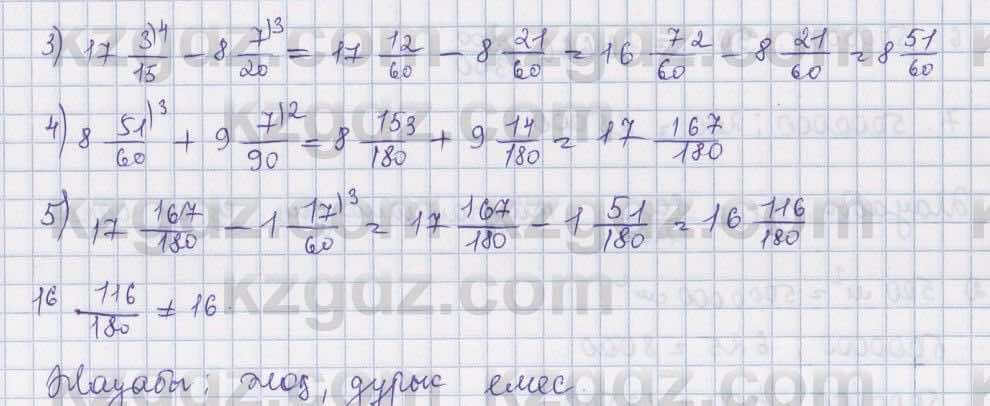 3) 17 3/15)4 − 8 7/20)3 = 17 12/60 − 8 21/60 = 16 72/60 − 8 21/60 = 8 51/60
4) 8 51/60)3 + 9 7/90)2 = 8 153/180 + 9 14/180 = 17 167/180
5) 17 167/180 − 1 17/60)3 = 17 167/180 − 1 51/180 = 16 116/180
16 116/180 ≠ 16
Жауабы: жоқ, дұрыс емес.
kzgdz.com
kzgdz.com
kzgdz.com
kzgdz.com